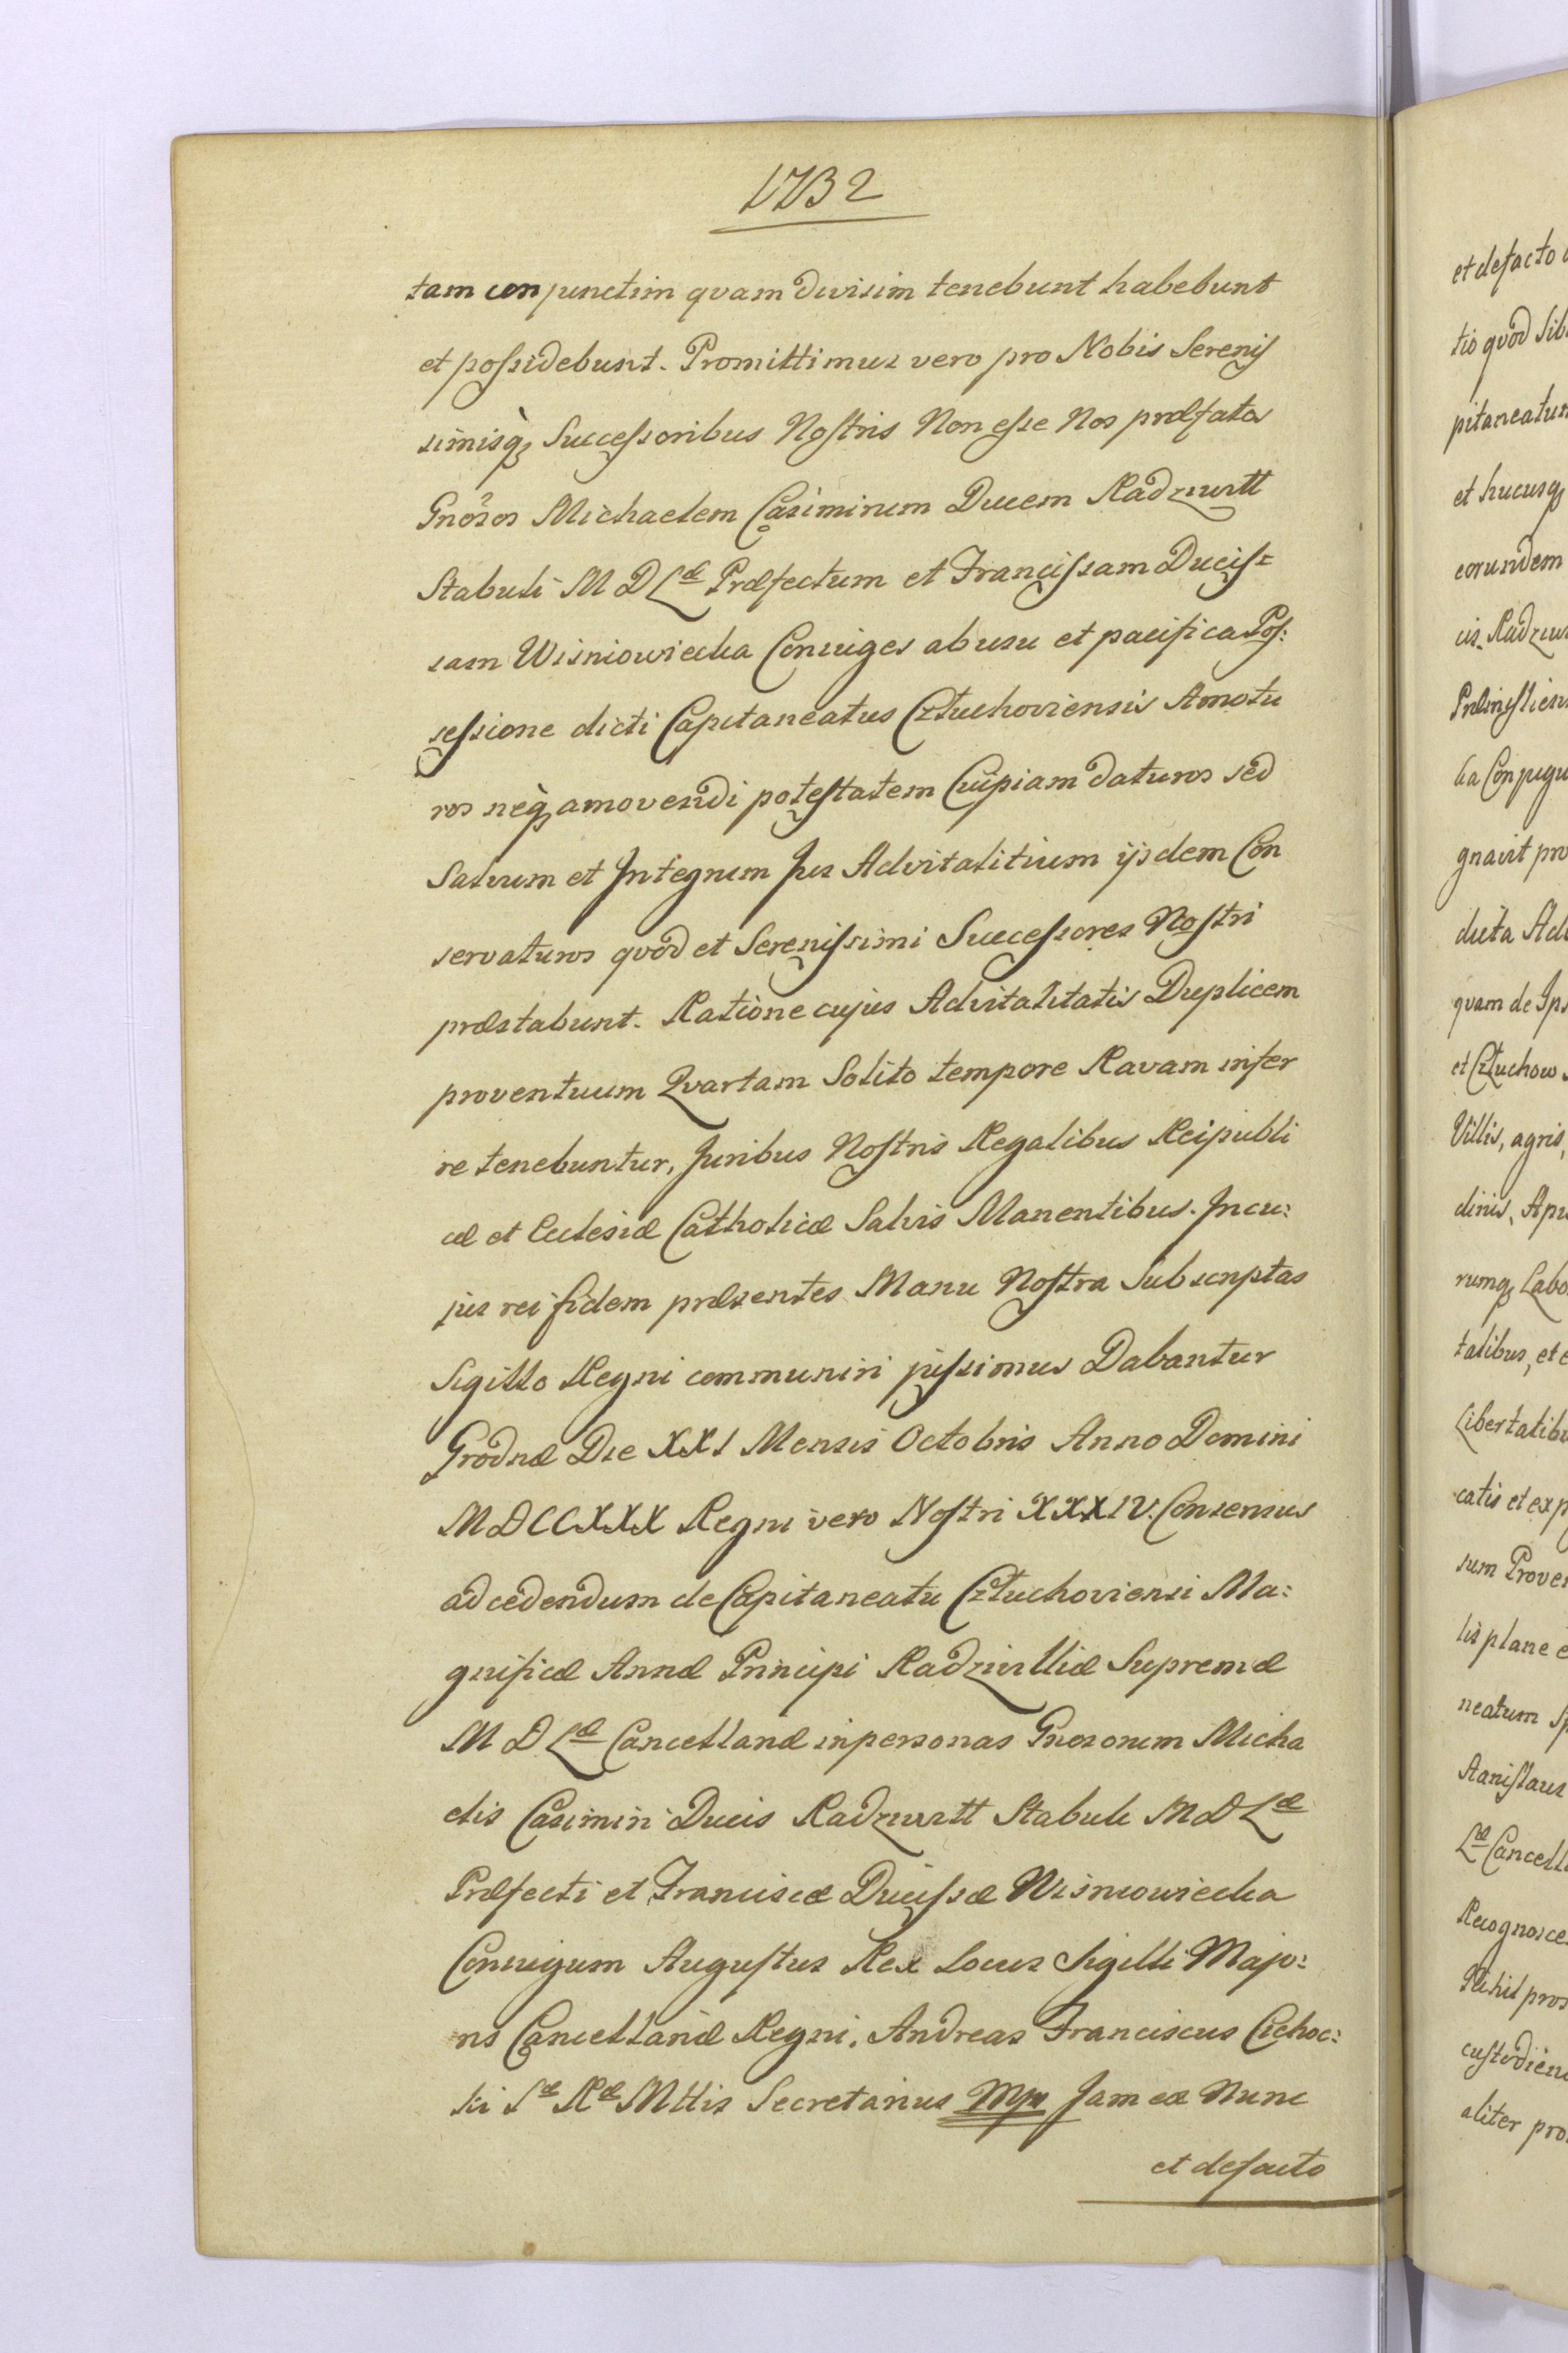 1732
tam conjunctim qvam divisim tenebunt habebunt
et possidebunt. Promittimus vero pro Nobis Serenis
simisq; Successoribus Nostris Non esse Nos præfatos
Gnosos Michaelem Casimirum Ducem Radziwill
Stabuli M D Læ Præfectum et Francissam Ducis=
sam Wisniowiecka Conjuges ab usu et pacifica Pos:
sessione dicti Capitaneatus Człuchoviensis Amotu
ros neq; amovendi potestatem Cuipiam daturos sed
Salvum et Integrum Jus Advitalitium ijsdem Con
servaturos qvod et Serenissimi Successores Nostri
præstabunt. Ratione cujus Advitalitatis Duplicem
proventuum Qvartam Solito tempore Ravam infer
re tenebuntur, Juribus Nostris Regalibus Reipubli
cæ et Eclesiæ Catholicæ Salvis Manentibus. In cu:
jus rei fidem præsentes Manu Nostra Subscriptas
Sigillo Regni communiri jussimus Dabantur
Grodnæ Die XXI Mensis Octobris Anno Domini
MDCCXXX Regni vero Nostri XXXIV. Consensus
ad cedendum de Capitaneatu Człuchoviensi Ma:
gnificæ Annæ Principi Radziwilliæ Supremæ
M D Læ Cancellariæ in personas Gnosorum Micha
elis Casimiri Ducis Radziwill Stabuli M D Læ
Præfecti et Franciscæ Ducissæ Wisniowiecka
Conjugum Augustus Rex Locus Sigilli Majo:
ris Cancellariæ Regni. Andreas Franciscus Cichoc:
ki Sæ Ræ Mttis Secretarius Mpr Jam ex Nunc
et defacto
et defacto
tio qvod Sib
pitaneatum
et hucusq;
eorundem
cis Radziw
ka Conjugu
gnavit pro
dicta Adv
qvam de Ips
et Człuchow
Villis, agris,
dinis, Apu
rumq; Labo
talibus, et e
Libertatibu
catis et exp
sum Prove
lis plane e
neatum Sp
Stanislaus
Læ Cancell
Recognosce
Nihil pros
custodien
aliter pro